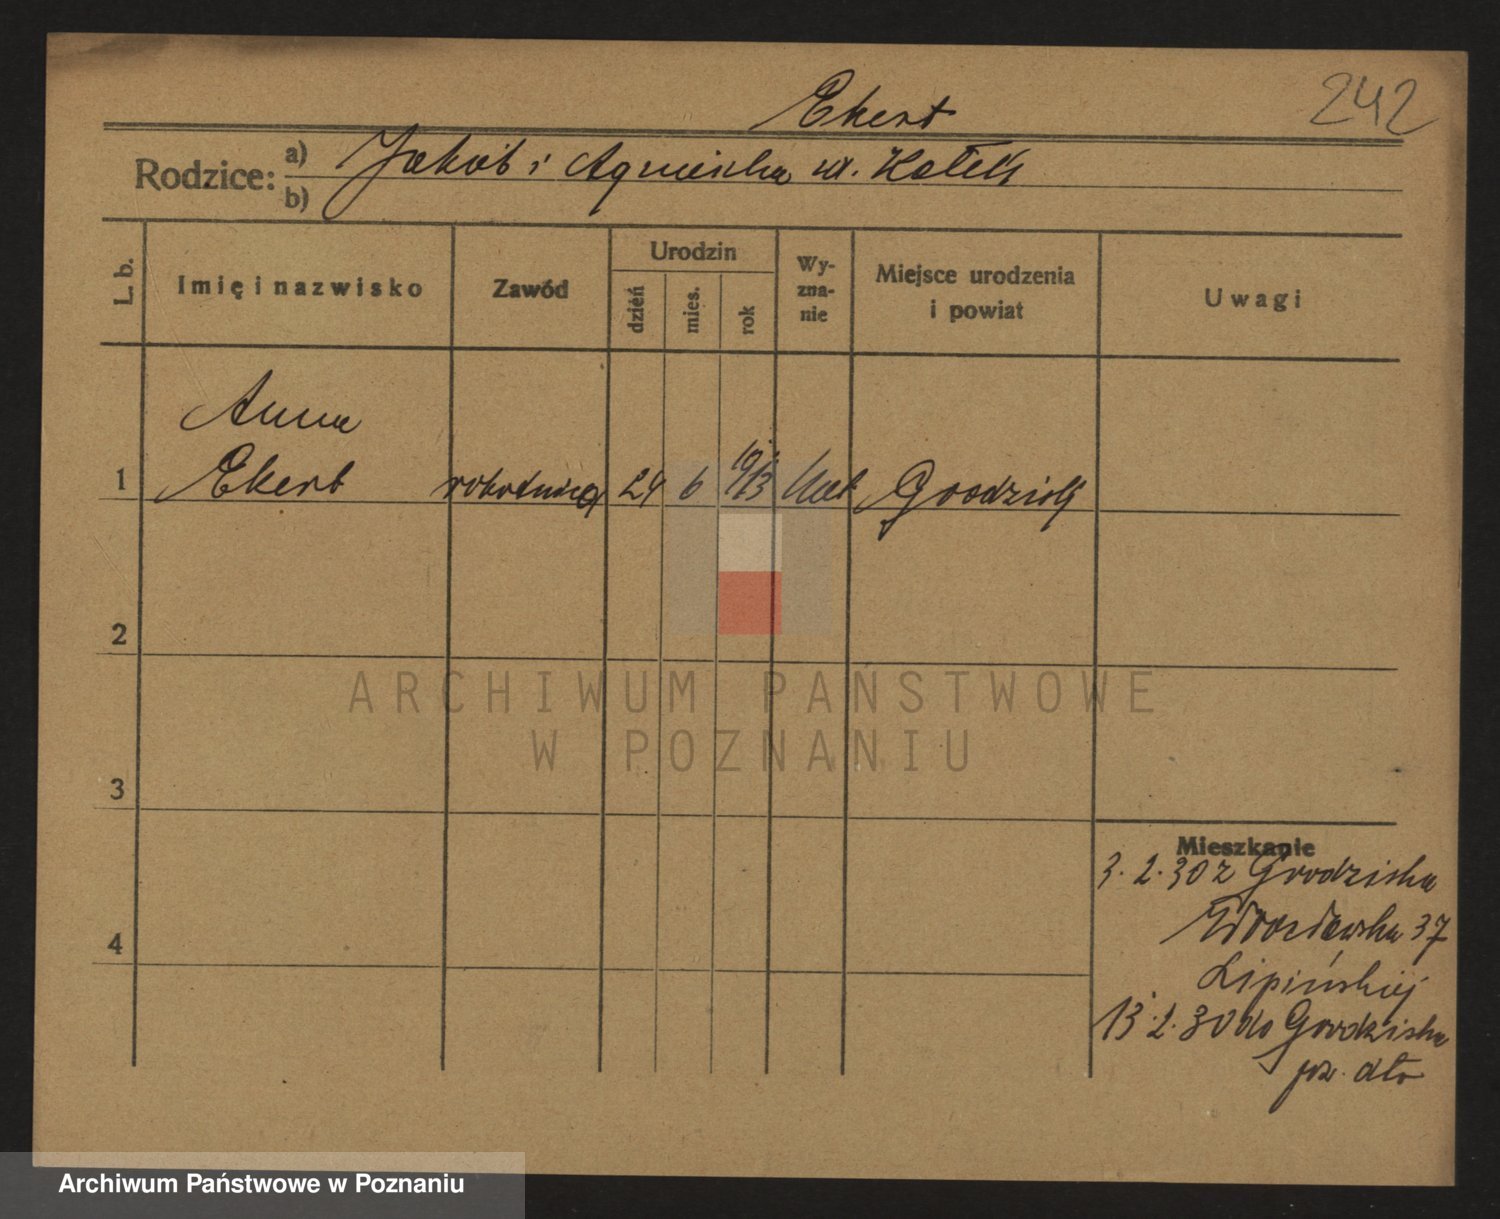 242
Ekert
Rodzice: a) Jakób i Agnieszka
b)
L. b.
Imię i nazwisko
Zawód
Urodzin
dzień
mies.
rok
Wy-
zna-
nie
Miejsce urodzenia
i powiat
Uwagi
Anna
1 Ekert robotnica 24 6 1913 kat Grodzisk
2
3
4
Mieszkanie
3.2.30 z Grodziska
37
Lipińskiej
13.2.30 do Grodziska
ARCHIWUM PAŃSTWOWE
W POZNANIU
Archiwum Państwowe w Poznaniu